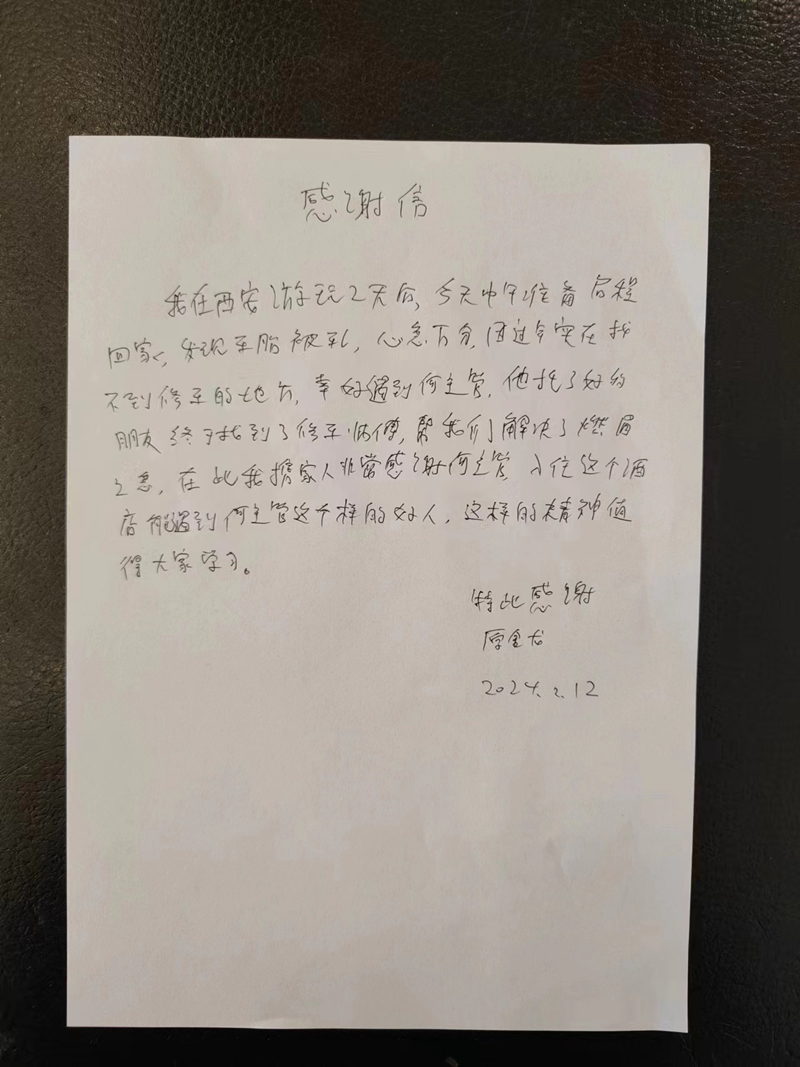 感谢信
我在西安游玩2天后，今天中午准备启程
回家，发现车胎被扎，心急万分，因过年实在找
不到修车的地方，幸好遇到何主管，他托了好的
朋友终于找到了修车师傅，帮我们解决了燃眉
之急，在此我携家人非常感谢何主管，入住这个酒
店能遇到何主管这个样的好人，这样的精神值
得大家学习。
特此感谢
2024.2.12